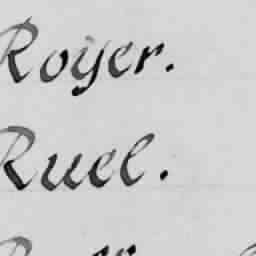 Royer.
Ruel.